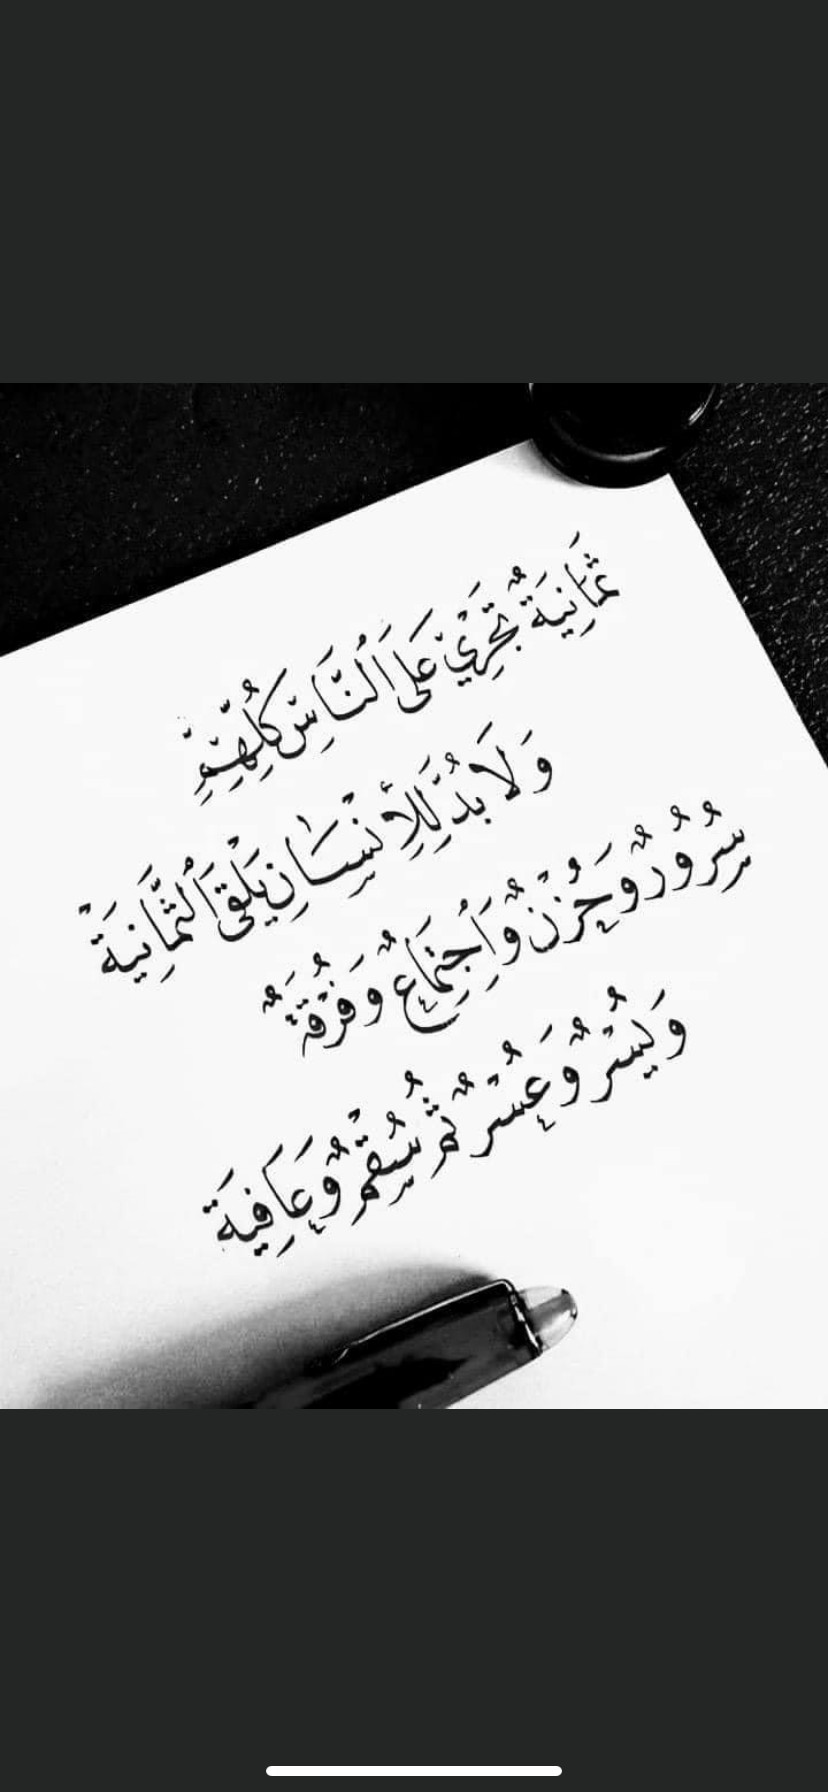 ثَمَانِيَةٌ تَجْرِيْ عَلَى ٱلنَّاسِ كُلِّهِمِْ
وَلَا بُدَّ لِلْأِنْسَانِ يَلْقَى ٱلثَّمَانِيَةَْ
سُرُورٌ وَحُزْنٌ وَٱجِتِمَاعٌ وَفُرْقَةٌ
وَيُسْرٌ وَعُسْرٌ ثُمَّ سُقْمٌ وَعَافِيَة